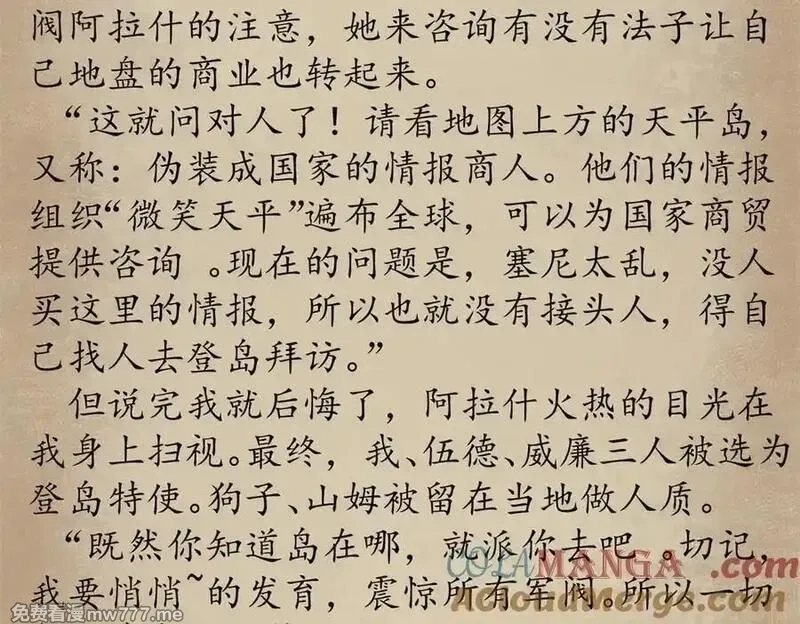 阀阿拉什的注意，她来咨询有没有法子让自
己地盘的商业也转起来。
“这就问对人了！请看地图上方的天平岛，
又称：伪装成国家的情报商人。他们的情报
组织“微笑天平”遍布全球，可以为国家商贸
提供咨询 。现在的问题是，塞尼太乱，没人
买这里的情报，所以也就没有接头人，得自
己找人去登岛拜访。”
但说完我就后悔了，阿拉什火热的目光在
我身上扫视。最终，我、伍德、威廉三人被选为
登岛特使。狗子、山姆被留在当地做人质。
“既然你知道岛在哪，就派你去吧 。切记，
我要悄悄~的发育，震惊所有军阀。所以一切
COLAMANGA.com
AcloudMerge.com
免费看漫mw777.me